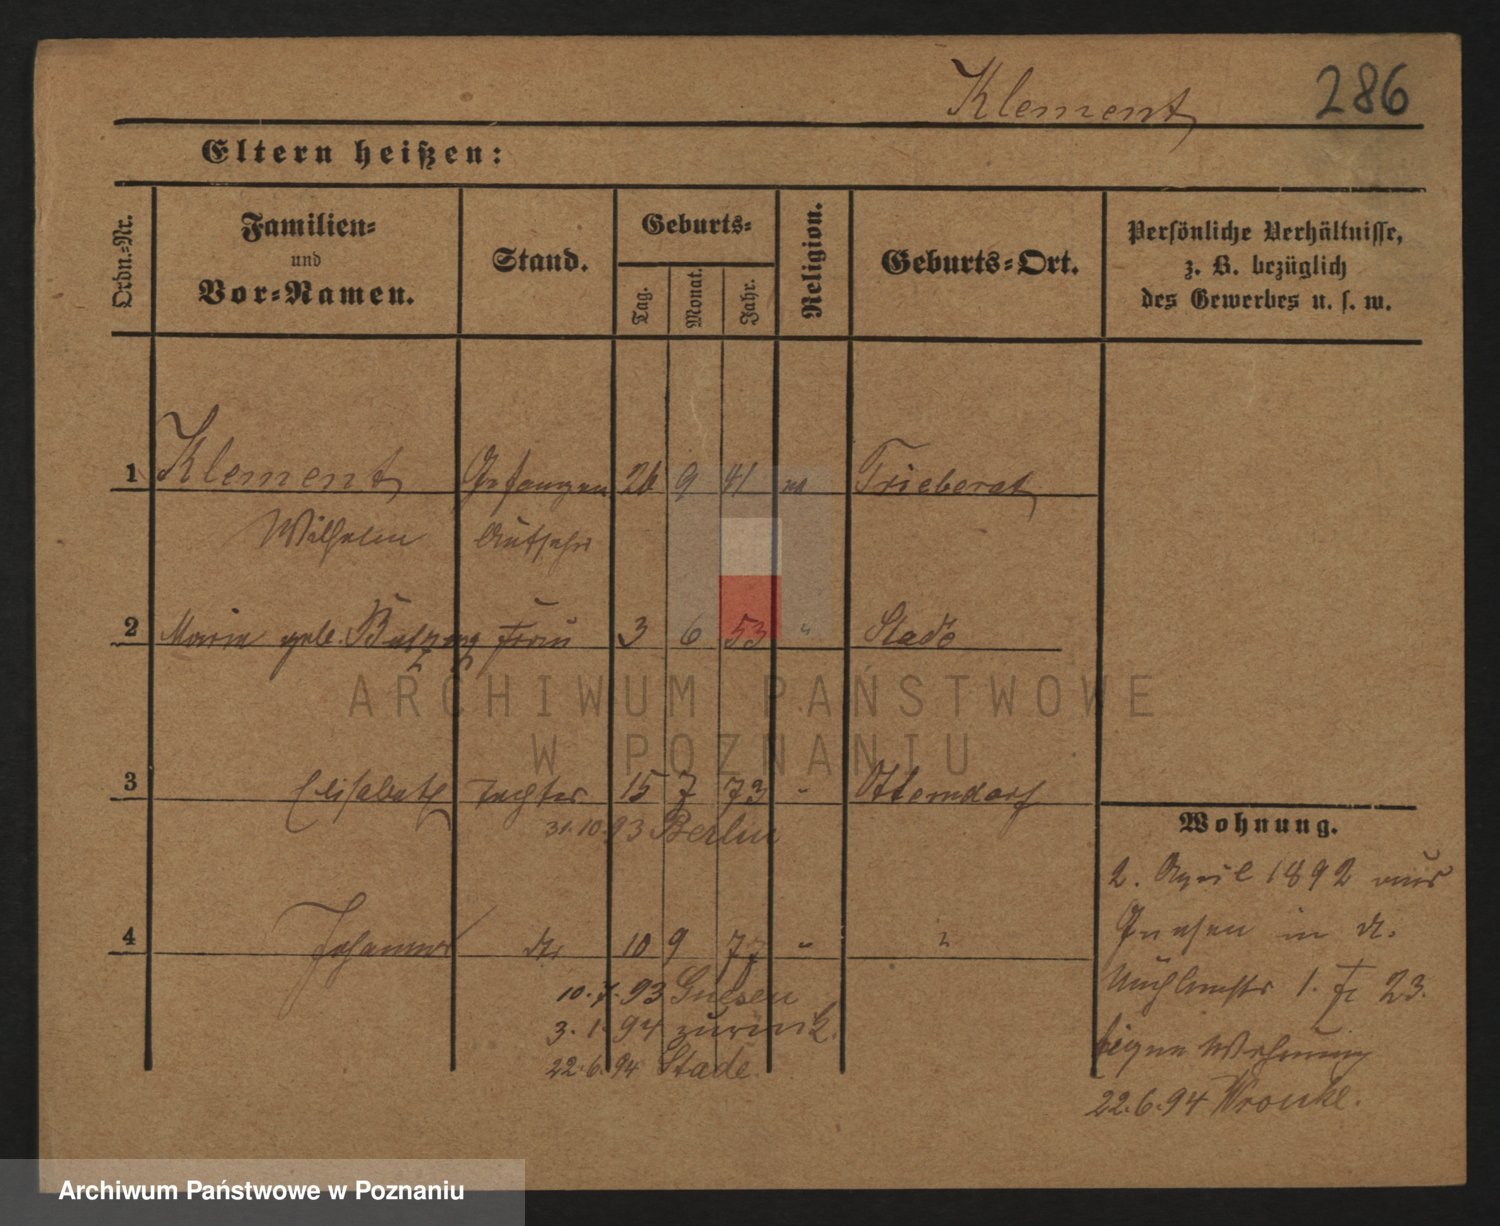 Klement 286
Eltern heißen:
Ordn.-Nr. Familien- und Vor-Namen. Stand. Geburts- Tag. Monat. Jahr. Religion. Geburts-Ort. Persönliche Verhältnisse, z. B. bezüglich des Gewerbes u. s. w.
1 Klement Gefangen 26 9 41 Trieberat
Wilhelm Aufseher
2 Marie geb. Frau 3 6 53 " Stade
3 Elisabeth Tochter 15 7 73 " Otterndorf
31.10.93 Berlin
4 Johannes 10 9 77 " "
10.7.93 Gnesen
3.1.94 zurück
22.6.94 Stade.
Wohnung.
2. April 1892 aus
Gnesen in
1. 23.
eigene Wohnung
22.6.94 Wronke.
ARCHIWUM PAŃSTWOWE
W POZNANIU
Archiwum Państwowe w Poznaniu